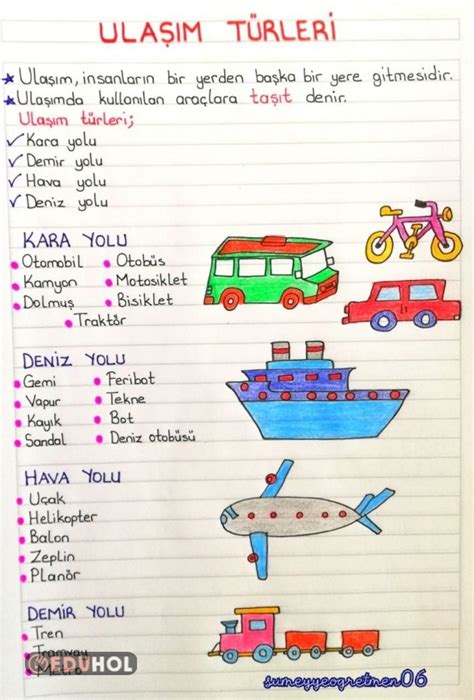 ULAŞIM TÜRLERİ
★ Ulaşım, insanların bir yerden başka bir yere gitmesidir.
★ Ulaşımda kullanılan araçlara taşıt denir.
Ulaşım türleri;
✓ Kara yolu
✓ Demir yolu
✓ Hava yolu
✓ Deniz yolu
KARA YOLU
• Otomobil • Otobüs
• Kamyon • Motosiklet
• Dolmuş • Bisiklet
• Traktör
DENİZ YOLU
• Gemi • Feribot
• Vapur • Tekne
• Kayık • Bot
• Sandal • Deniz otobüsü
HAVA YOLU
• Uçak
• Helikopter
• Balon
• Zeplin
• Planör
DEMİR YOLU
• Tren
• Tramvay
• Metro
EDUHOL
sumeyyeogretmen06